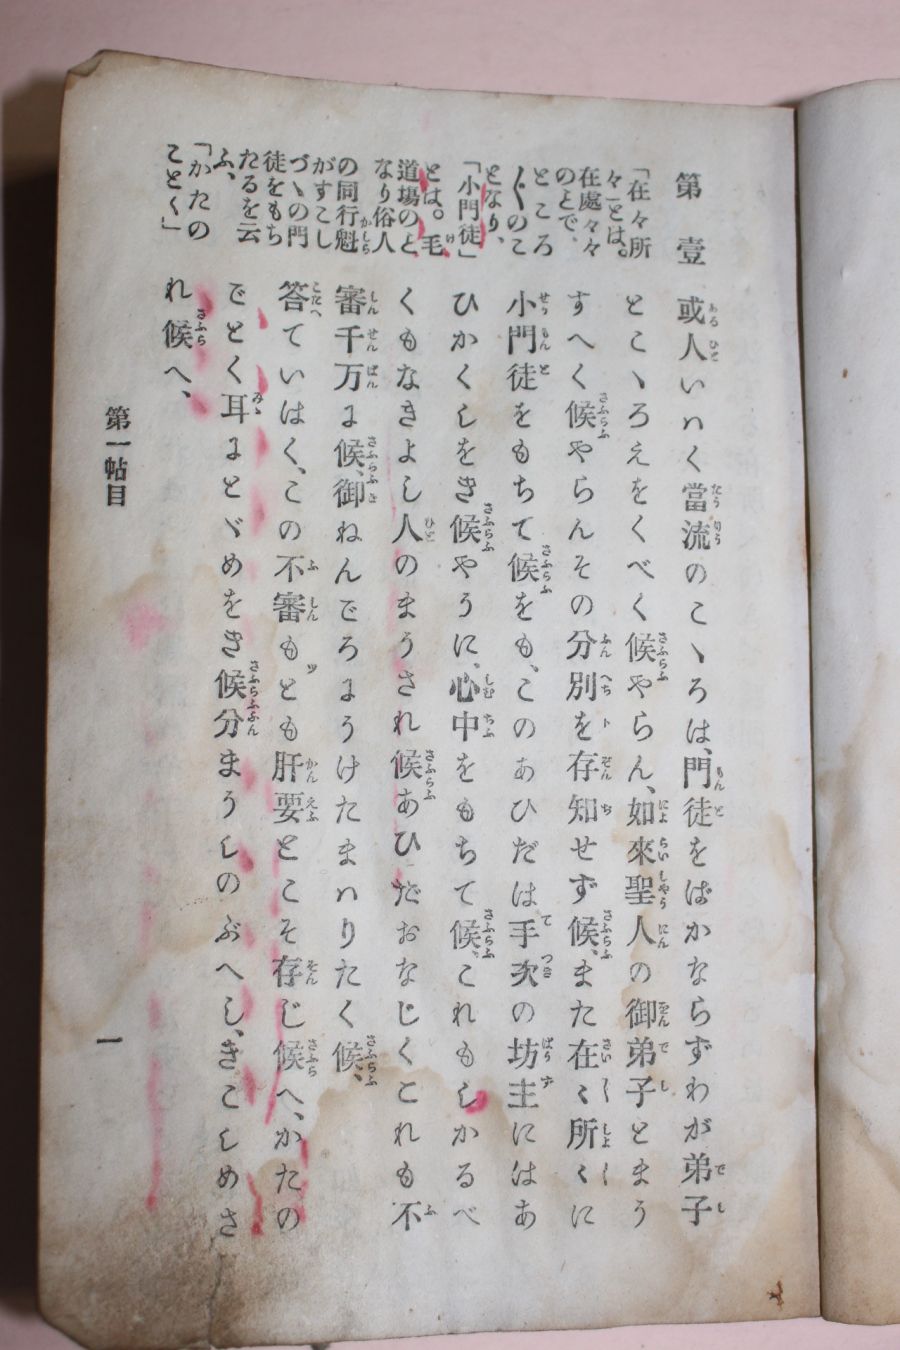 第壹
「在々所
々」とは。
在處々々
のことで、
ところ
〲のこ
となり、
「小門徒」
とは。毛
道場のと
なり俗人
の同行魁
がすこし
づゝの門
徒をもち
たるを云
ふ、
「かたの
ことく」
或人いハく當流のこゝろは、門徒をばかならずわが弟子
とこゝろえをくべく候やらん、如來聖人の御弟子とまう
すへく候やらんその分別を存知せず候、また在〻所〻に
小門徒をもちて候をも、このあひだは手次の坊主にはあ
ひかくしをき候やうに、心中をもちて候、これもしかるべ
くもなきよし人のまうされ候あひだおなじくこれも不
審千万に候、御ねんごろにうけたまハりたく候、
答ていはく、この不審もとも肝要とこそ存じ候へ、かたの
ごとく耳にとゞめをき候分まうしのぶへし、きこしめさ
れ候へ、
第一帖目
一